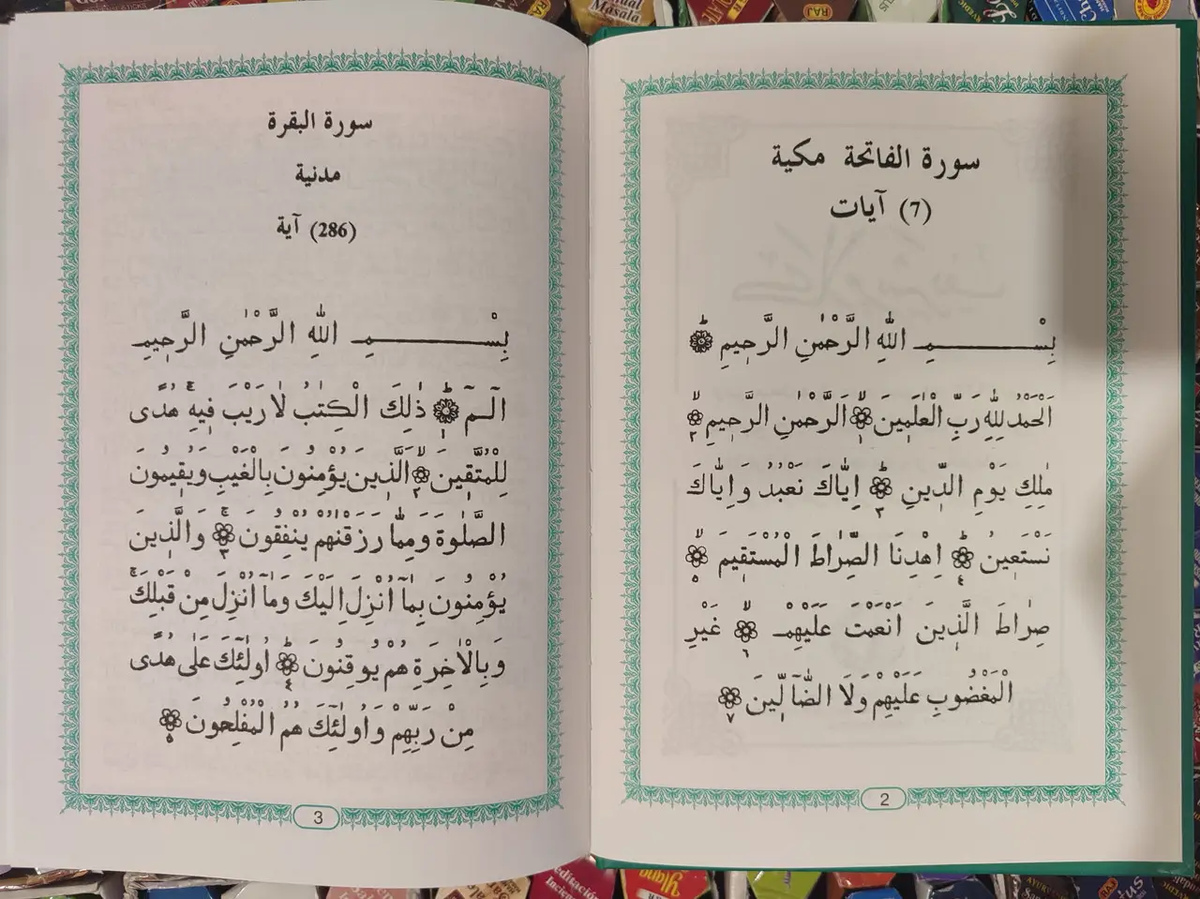 سورة الفاتحة مكية
(7) آيات
بِسْــــــــــمِ اللّٰهِ الرَّحْمٰنِ الرَّحِيمِ
اَلْحَمْدُ لِلّٰهِ رَبِّ الْعٰلَمِينَ ١ اَلرَّحْمٰنِ الرَّحِيمِ ٢
مٰلِكِ يَوْمِ الدِّينِ ٣ اِيَّاكَ نَعْبُدُ وَاِيَّاكَ
نَسْتَعِينُ ٤ اِهْدِنَا الصِّرَاطَ الْمُسْتَقِيمَ ٥
صِرَاطَ الَّذِينَ اَنْعَمْتَ عَلَيْهِمْ ٦ غَيْرِ
الْمَغْضُوبِ عَلَيْهِمْ وَلَا الضَّآلِّينَ ٧
2
سورة البقرة
مدنية
(286) آية
بِسْــــــــــمِ اللّٰهِ الرَّحْمٰنِ الرَّحِيمِ
الٓـمٓ ١ ذٰلِكَ الْكِتٰبُ لَا رَيْبَ فِيهِ هُدًى
لِلْمُتَّقِينَ ٢ اَلَّذِينَ يُؤْمِنُونَ بِالْغَيْبِ وَيُقِيمُونَ
الصَّلٰوةَ وَمِمَّا رَزَقْنٰهُمْ يُنْفِقُونَ ٣ وَالَّذِينَ
يُؤْمِنُونَ بِمَآ اُنْزِلَ اِلَيْكَ وَمَآ اُنْزِلَ مِنْ قَبْلِكَ
وَبِالْاٰخِرَةِ هُمْ يُوقِنُونَ ٤ اُولٰٓئِكَ عَلٰى هُدًى
مِنْ رَبِّهِمْ وَاُولٰٓئِكَ هُمُ الْمُفْلِحُونَ ٥
3
Masala
RAJ
Ylang